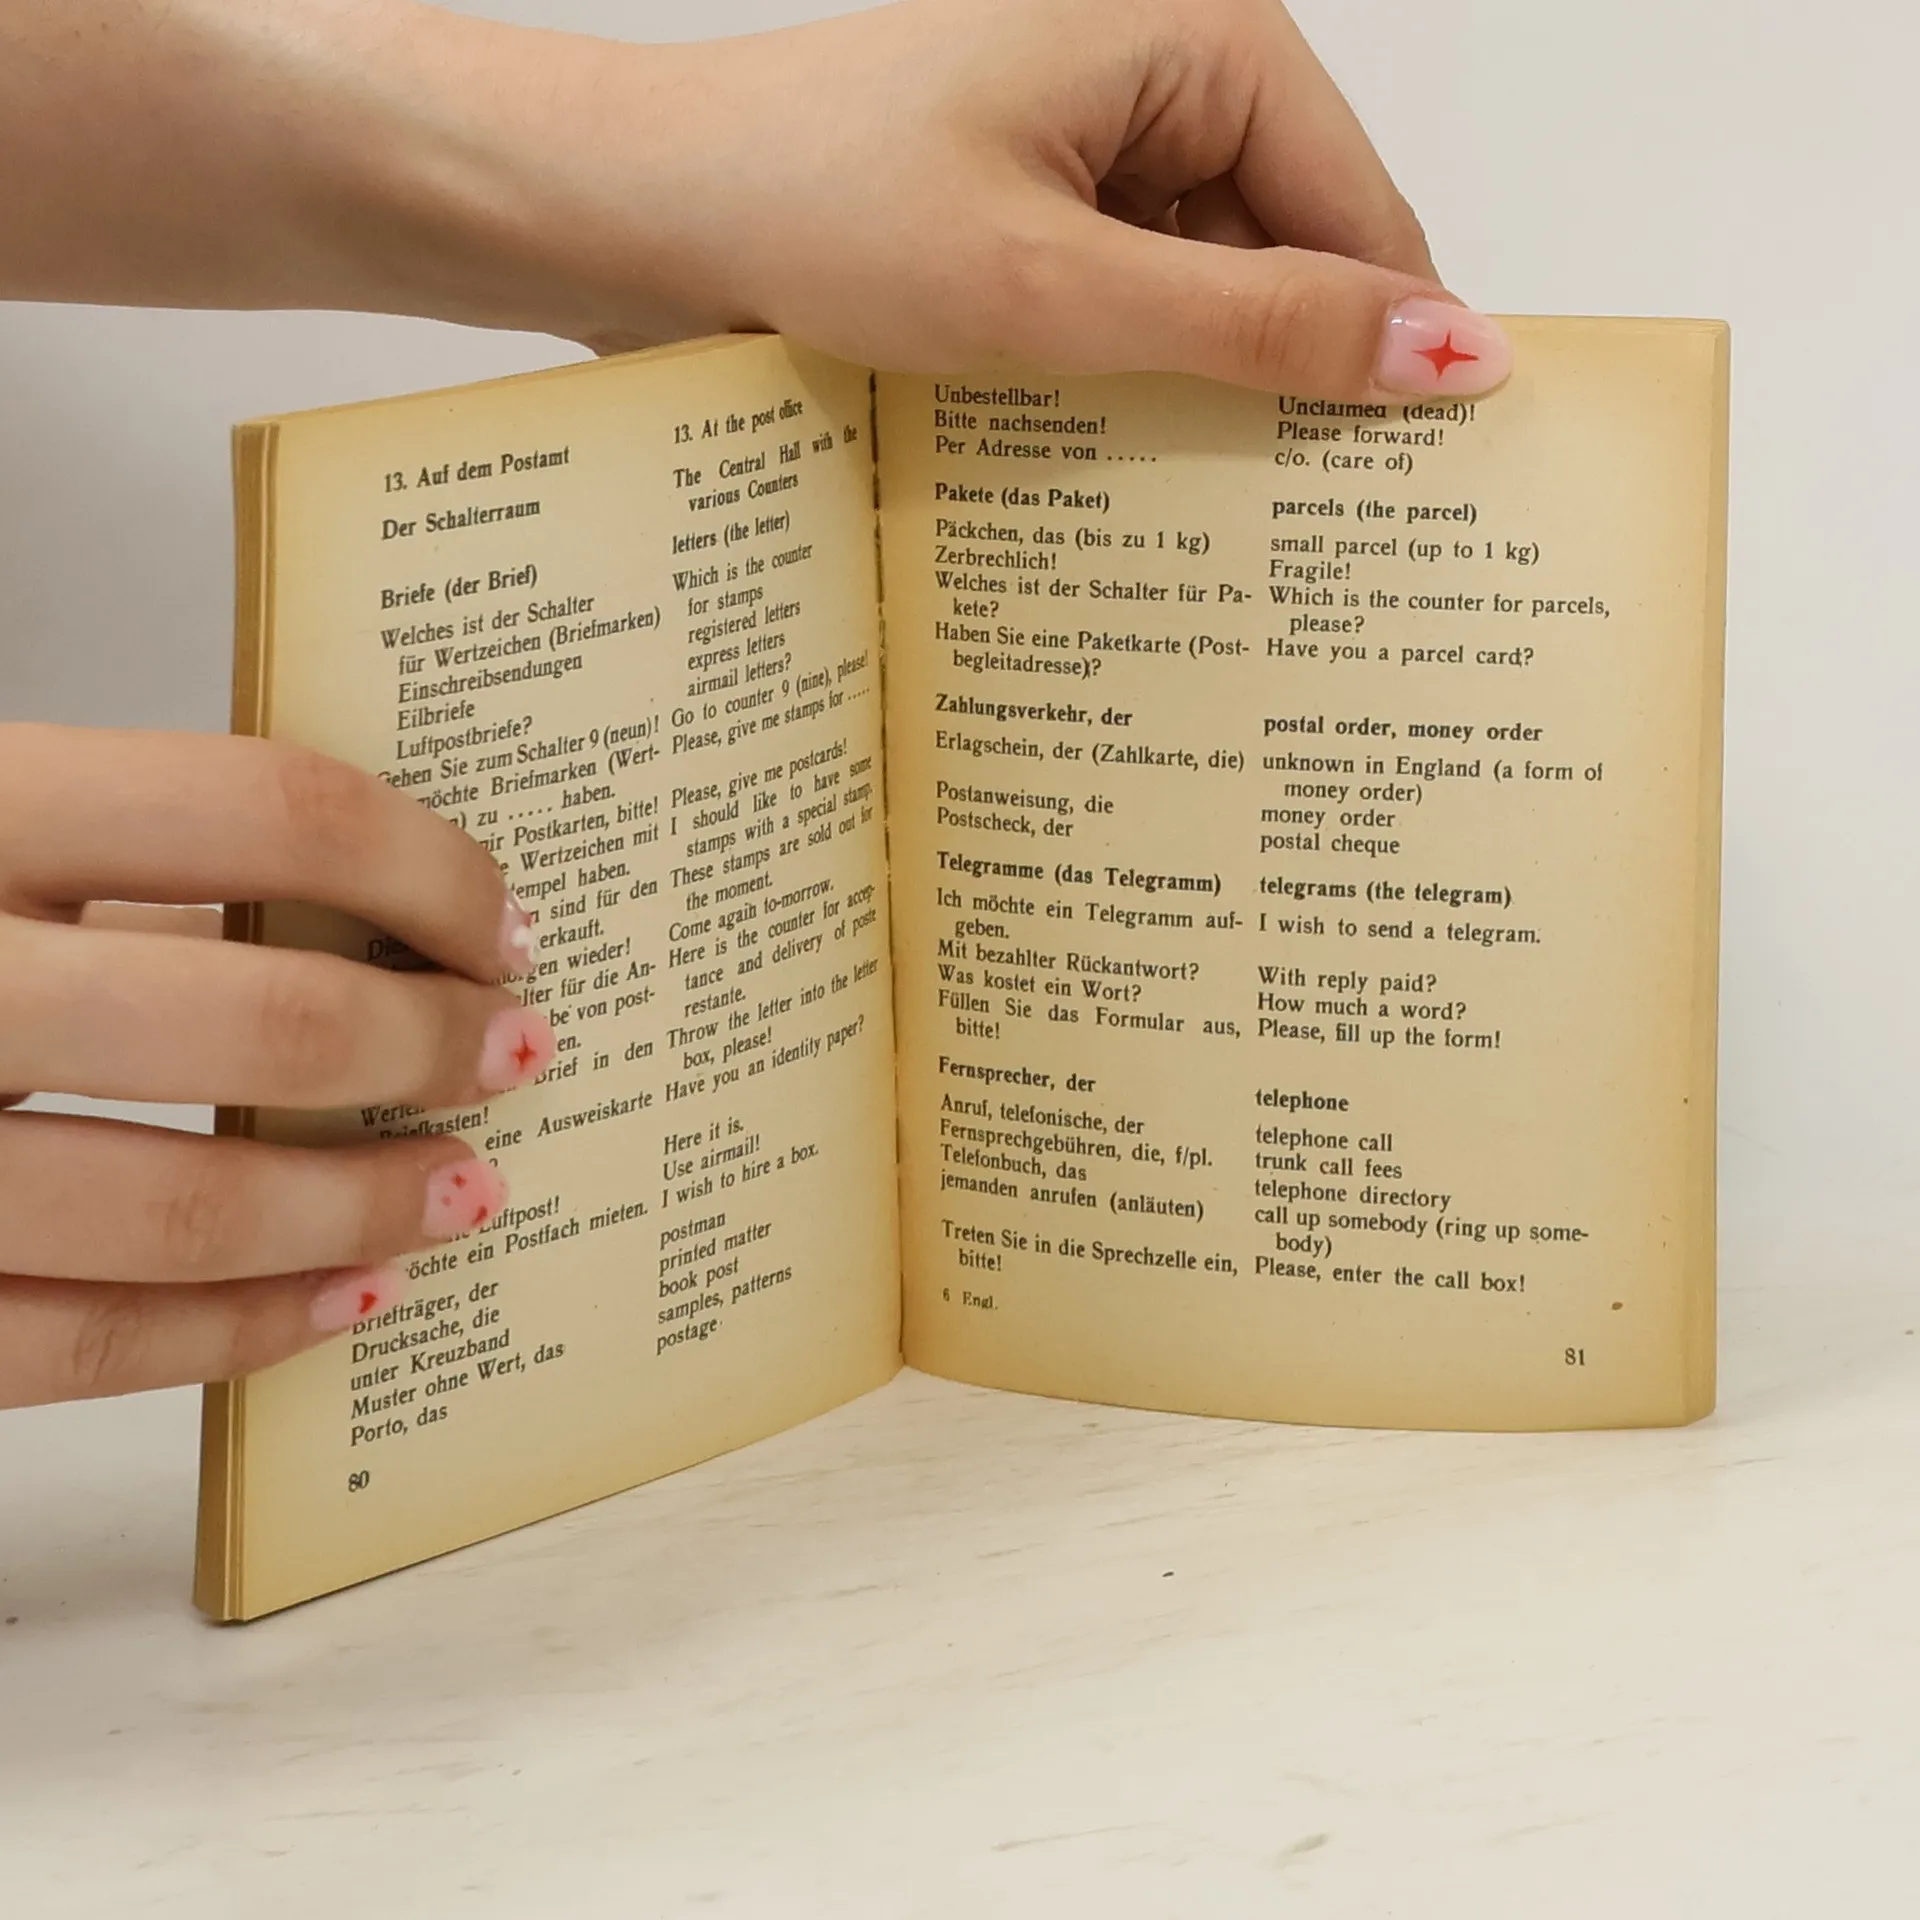 13. Auf dem Postamt
Der Schalterraum
Briefe (der Brief)
Welches ist der Schalter
für Wertzeichen (Briefmarken)
Einschreibsendungen
Eilbriefe
Luftpostbriefe?
Gehen Sie zum Schalter 9 (neun)!
möchte Briefmarken (Wert-
zu ..... haben.
Postkarten, bitte!
Wertzeichen mit
haben.
sind für den
wieder!
für die An-
von post-
Brief in den
Briefkasten!
eine Ausweiskarte
Luftpost!
ein Postfach mieten.
Briefträger, der
Drucksache, die
unter Kreuzband
Muster ohne Wert, das
Porto, das
80
13. At the post office
The Central Hall with the
various Counters
letters (the letter)
Which is the counter
for stamps
registered letters
express letters
airmail letters?
Go to counter 9 (nine), please!
Please, give me stamps for .....
Please, give me postcards!
I should like to have some
stamps with a special stamp.
These stamps are sold out for
the moment.
Come again to-morrow.
Here is the counter for accep-
tance and delivery of poste
restante.
Throw the letter into the letter
box, please!
Have you an identity paper?
Here it is.
Use airmail!
I wish to hire a box.
postman
printed matter
book post
samples, patterns
postage
Unbestellbar!
Bitte nachsenden!
Per Adresse von .....
Pakete (das Paket)
Päckchen, das (bis zu 1 kg)
Zerbrechlich!
Welches ist der Schalter für Pa-
kete?
Haben Sie eine Paketkarte (Post-
begleitadresse)?
Zahlungsverkehr, der
Erlagschein, der (Zahlkarte, die)
Postanweisung, die
Postscheck, der
Telegramme (das Telegramm)
Ich möchte ein Telegramm auf-
geben.
Mit bezahlter Rückantwort?
Was kostet ein Wort?
Füllen Sie das Formular aus,
bitte!
Fernsprecher, der
Anruf, telefonische, der
Fernsprechgebühren, die, f/pl.
Telefonbuch, das
jemanden anrufen (anläuten)
Treten Sie in die Sprechzelle ein,
bitte!
6 Engl.
Unclaimed (dead)!
Please forward!
c/o. (care of)
parcels (the parcel)
small parcel (up to 1 kg)
Fragile!
Which is the counter for parcels,
please?
Have you a parcel card?
postal order, money order
unknown in England (a form of
money order)
money order
postal cheque
telegrams (the telegram)
I wish to send a telegram.
With reply paid?
How much a word?
Please, fill up the form!
telephone
telephone call
trunk call fees
telephone directory
call up somebody (ring up some-
body)
Please, enter the call box!
81